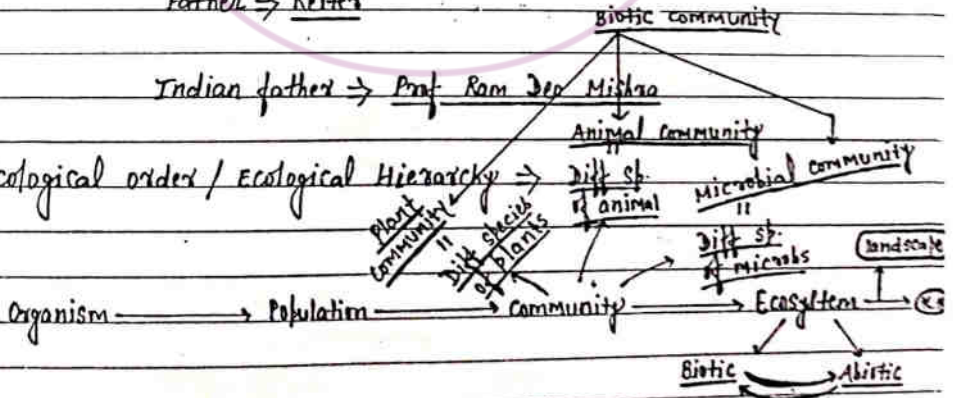 Father ⇒ Reiter
Biotic community
Indian father ⇒ Prof Ram Deo Mishra
Animal community
cological order / Ecological Hierarchy ⇒ Diff sp. of animal
Microbial community
=
Plant community
=
Diff species of plants
Diff sp. of microbs
landscape
Organism → Population → community → Ecosyltem →
Biotic Abiotic